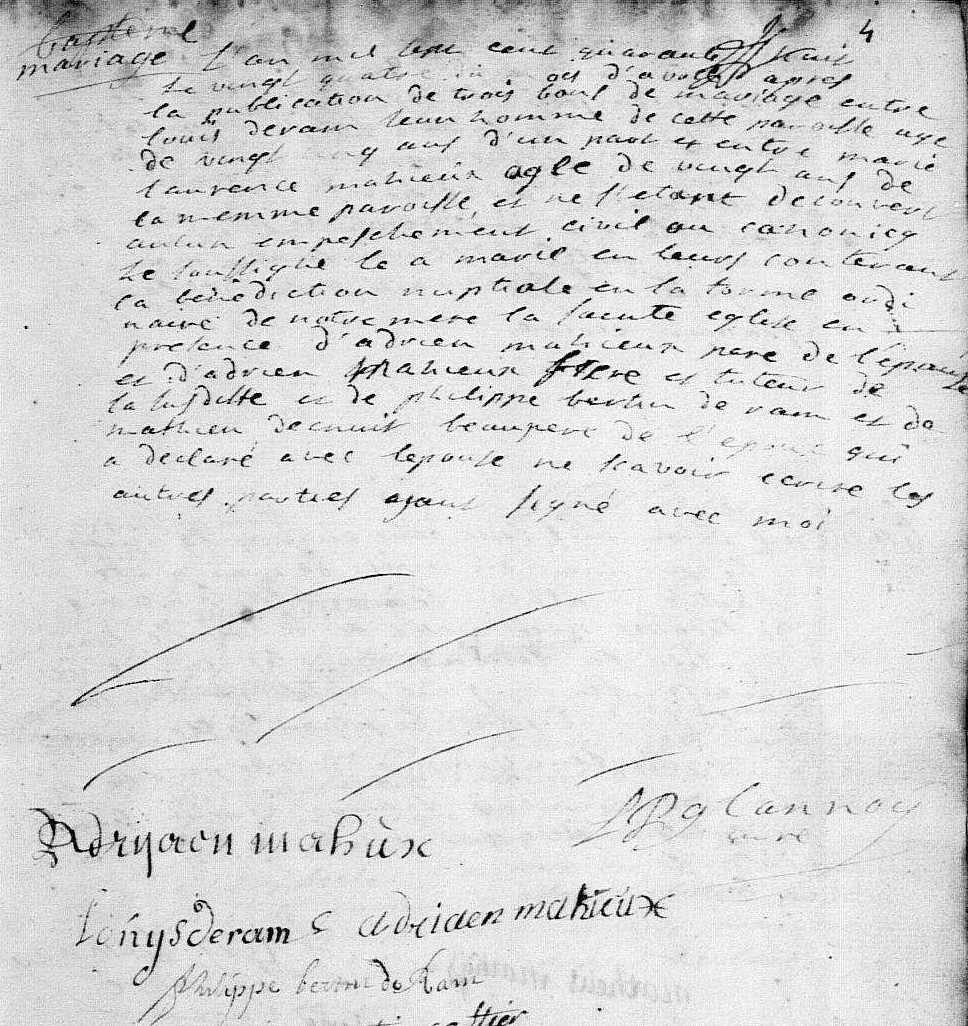 4
bapteme
mariage L'an mil sept cent quarante huit
le vingt quatre du mois d'avoust apres
la publication de trois bans de mariage entre
louis deram jeun homme de cette paroisse age
de vingt cinq ans d'un part et entre marie
laurence mahieux agée de vingt ans de
la memme paroisse, et ne s'etant decouvert
aucun empeschement civil ou canonicq
Je soussigné le a marié en leurs conferant
la bénédiction nuptiale en la forme ordi
naire de notre mere la sainte eglise en
presence d'adrien mahieux pere de l'epouse
et d'adrien Mahieux frere et tuteur de
la susditte et de philippe bertin de ram et de
mathieu decnuit beaupere de l'epoux qui
a declaré avec lepouse ne scavoir ecrire les
autres parties ayant signé avec moi
Adryaen mahùx
curé
louysderam adriaen mahieux
philippe bertin de Ram